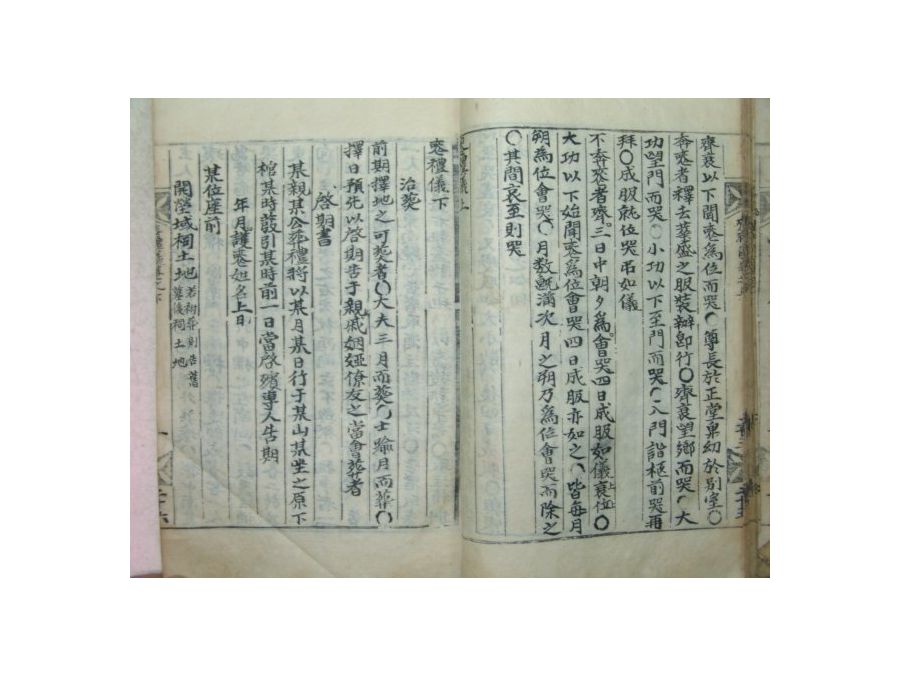 齊衰以下聞喪爲位而哭〇尊長於正堂卑幼於別室〇
奔喪者釋去華盛之服裝辦卽行〇齊衰望鄕而哭〇大
功望門而哭〇小功以下至門而哭〇入門詣柩前哭再
拜〇成服就位哭吊如儀
不奔喪者齊三日中朝夕爲會哭四日成服如儀
大功以下始聞喪爲位會哭四日成服亦如之〇皆每月
朔爲位會哭〇月數旣滿次月之朔乃爲位會哭而除之
〇其間哀至則哭
喪禮儀上
喪禮儀下
治葬
前期擇地之可葬者〇大夫三月而葬〇士踰月而葬〇
擇日預先以啓期告于親戚姻婭僚友之當會葬者
啓期書
某親某公葬禮將以某月某日行于某山某坐之原下
棺某時發引某時前一日當啓殯專人告期
年月護喪姓名上日
某位座前
開塋域祠土地
墓後祠土地